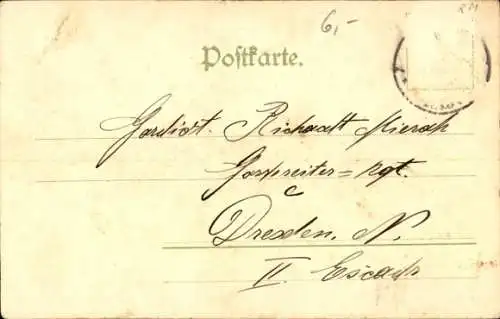 6,-
Postkarte.
Gardist. Richardt
Gardereiter=Rgt.
Dresden. N.
II. Escadr